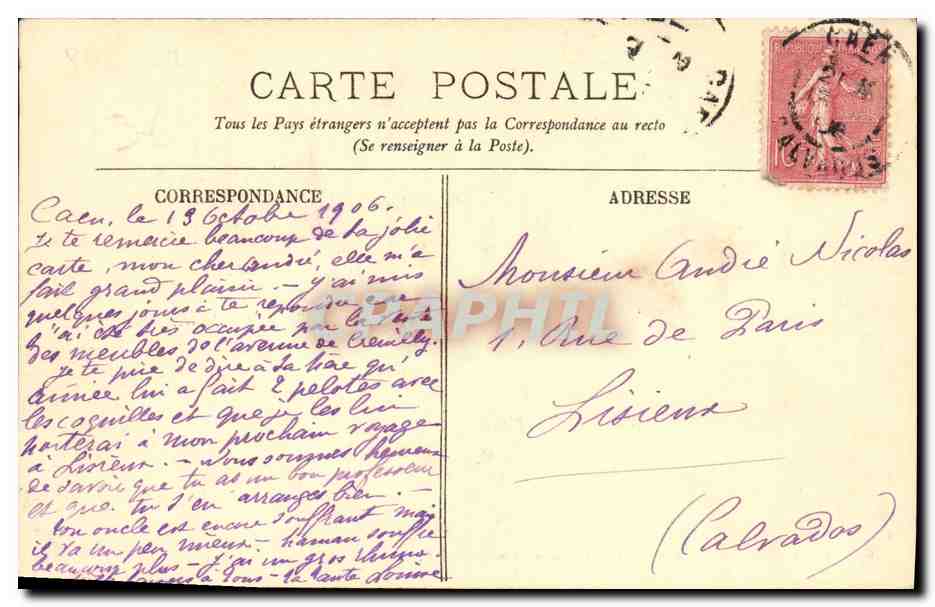 CARTE POSTALE
Tous les Pays étrangers n'acceptent pas la Correspondance au recto
(Se renseigner à la Poste).
CORRESPONDANCE
Caen, le 19 Octobre 1906.
Je te remercie beaucoup de ta jolie
carte, mon cher André, elle m'a
fait grand plaisir – j'ai mis
quelques jours à te repondre
j'ai été très occupée par la
des meubles de l'avenue de
Je te prie de dire à ta qu'
Aimée lui a fait 2 pelotes avec
les coquilles et que je les lui
porterai à mon prochain voyage
à Lisieux. – Nous sommes heureux
de savoir que tu as un bon professeur
et que tu t'en arranges bien. –
Ton oncle est encore souffrant mais
il va un peu mieux – maman souffre
beaucoup plus – j'ai un gros rhume
à tous – ta tante Louise
ADRESSE
Monsieur André Nicolas
1, Rue de Paris
Lisieux
(Calvados)
CAEN
CALVADOS
CPAPHIL